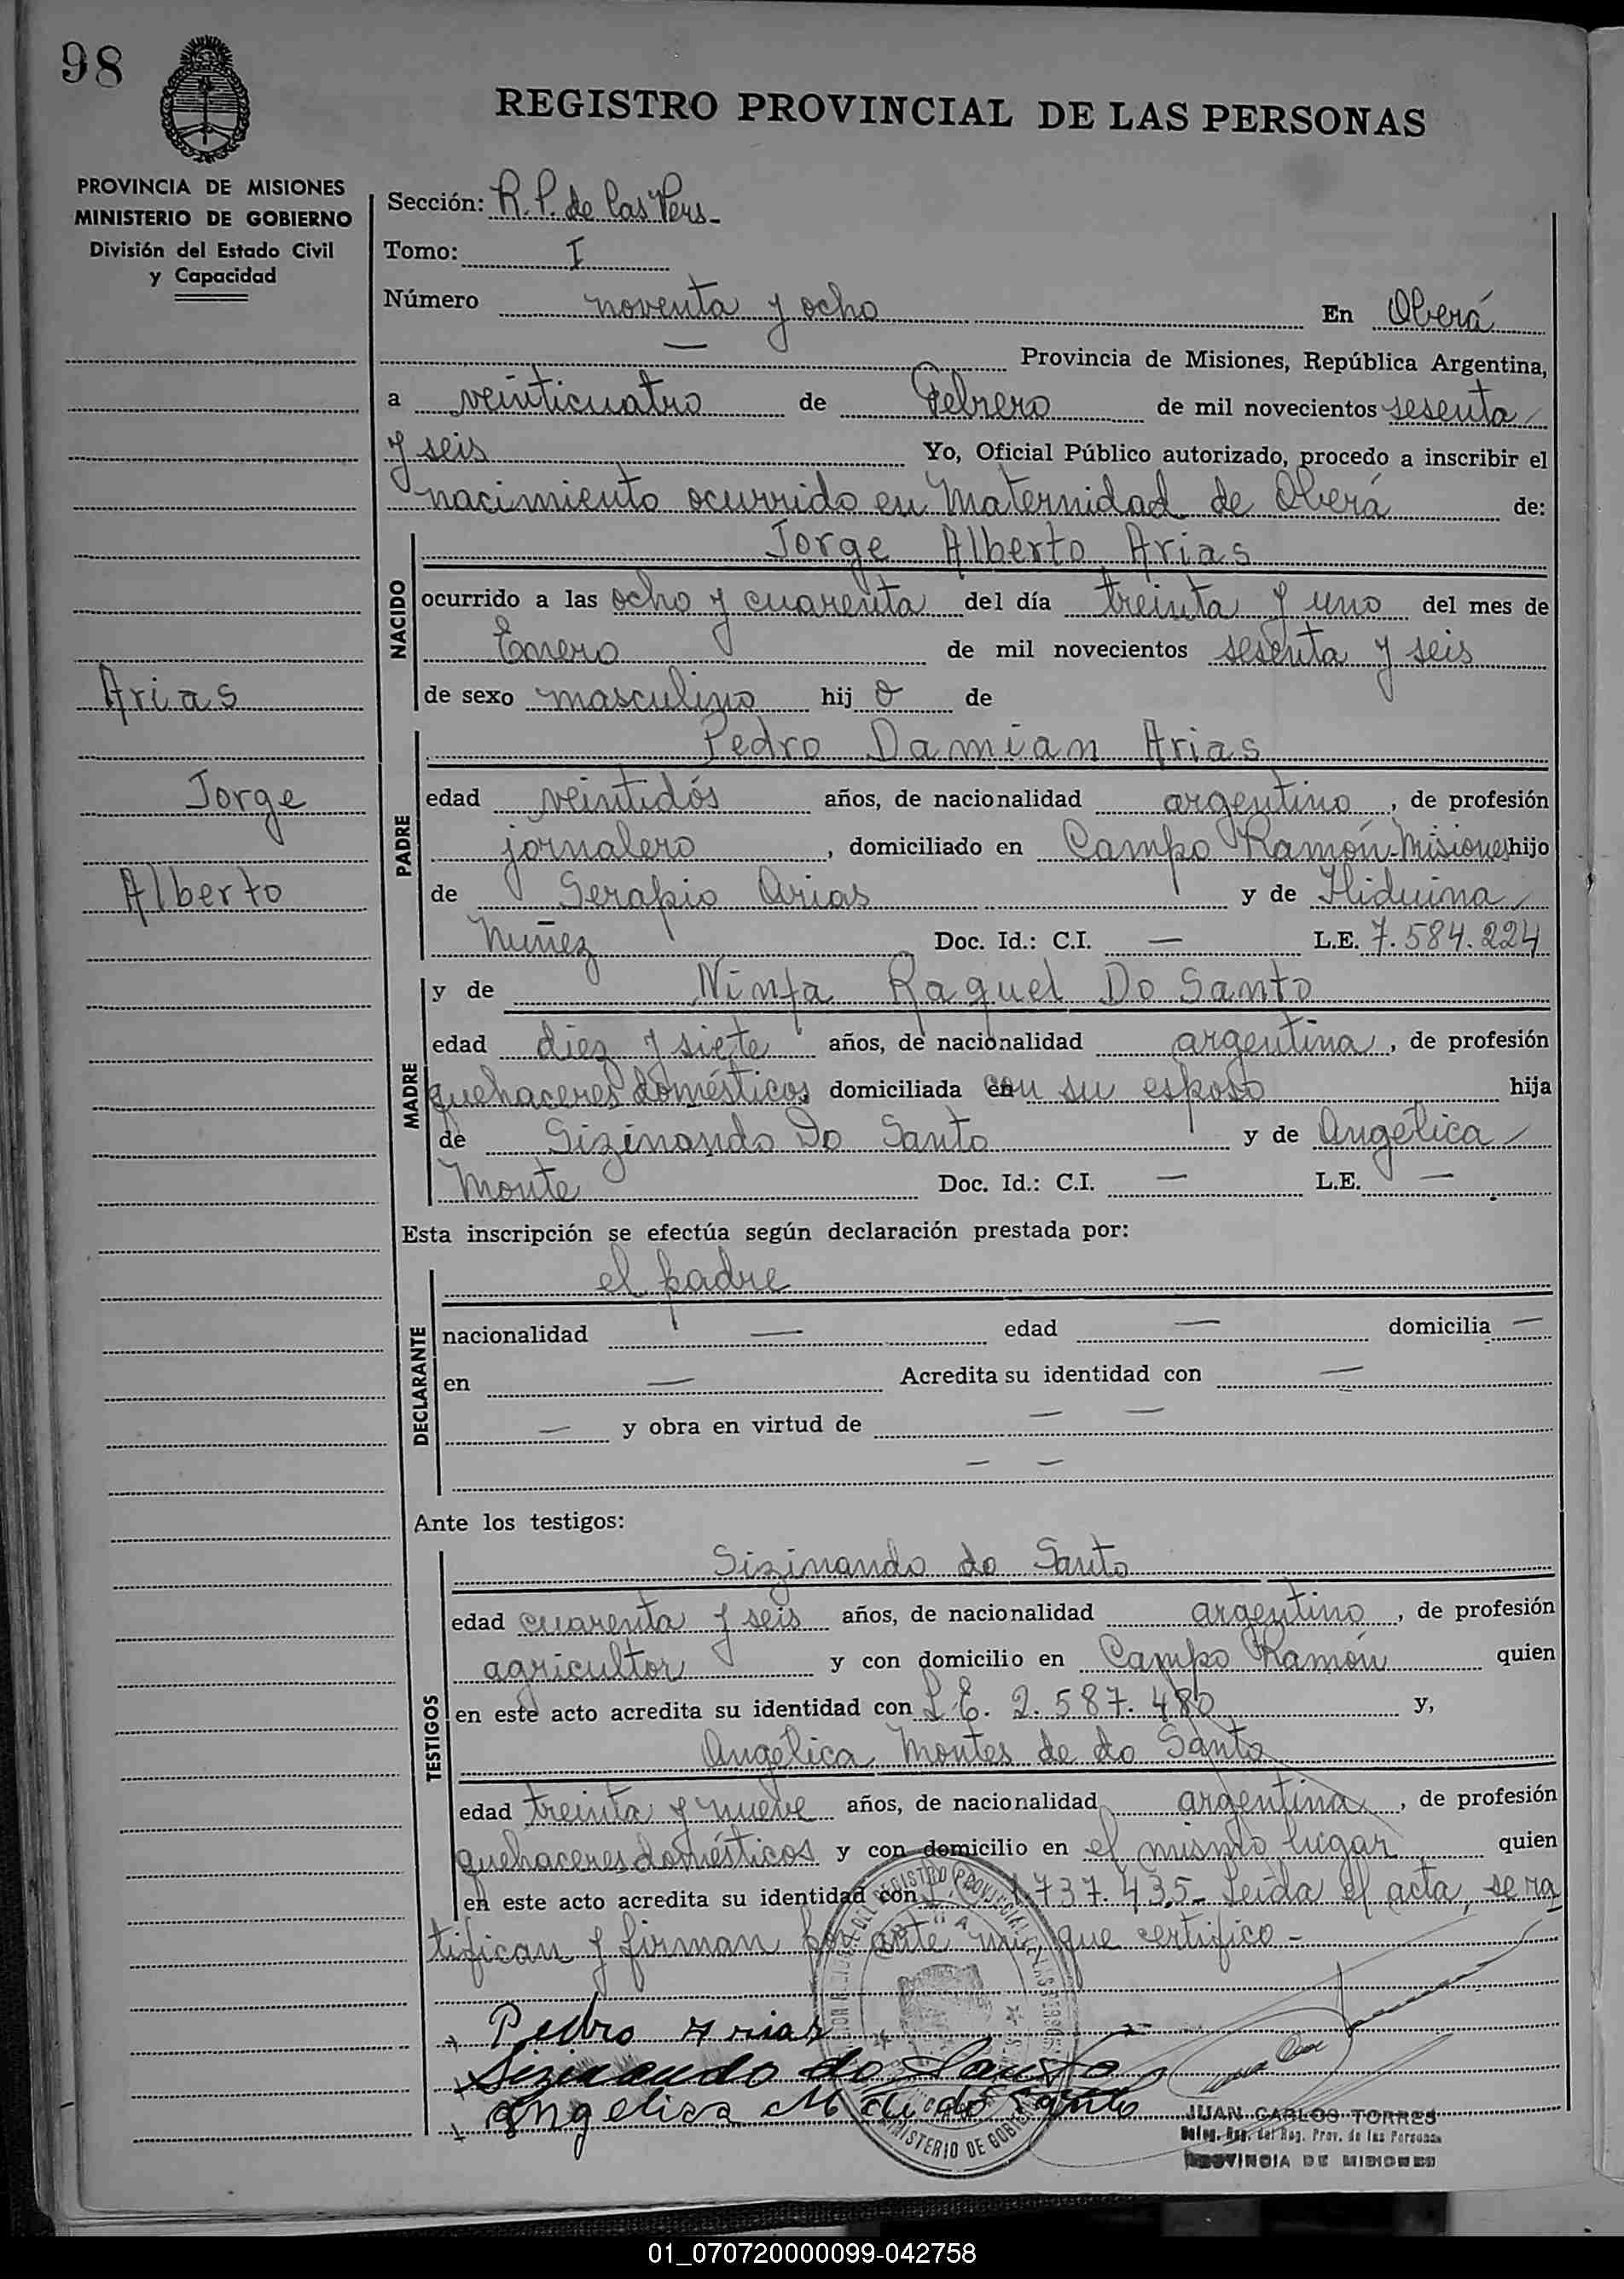 98
REGISTRO PROVINCIAL DE LAS PERSONAS
PROVINCIA DE MISIONES
MINISTERIO DE GOBIERNO
División del Estado Civil
y Capacidad
Sección: R. P. de las Pers-
Tomo: I
Número noventa y ocho En Oberá
— Provincia de Misiones, República Argentina,
a veinticuatro de Febrero de mil novecientos sesenta
y seis Yo, Oficial Público autorizado, procedo a inscribir el
nacimiento ocurrido en Maternidad de Oberá de:
NACIDO
Jorge Alberto Arias
ocurrido a las ocho y cuarenta del día treinta y uno del mes de
Enero de mil novecientos sesenta y seis
de sexo masculino hij o de
Arias
Jorge
Alberto
PADRE
Pedro Damian Arias
edad veintidós años, de nacionalidad argentino, de profesión
jornalero, domiciliado en Campo Ramón-Misiones hijo
de Serapio Arias y de Hiduina
Nuñez Doc. Id.: C.I. — L.E. 7.584.224
MADRE
y de Ninfa Raquel Do Santo
edad diez y siete años, de nacionalidad argentina, de profesión
quehaceres domésticos domiciliada con su esposo hija
de Sizinando Do Santo y de Angélica
Monte Doc. Id.: C.I. — L.E. —
Esta inscripción se efectúa según declaración prestada por:
DECLARANTE
el padre
nacionalidad — edad — domicilia —
en — Acredita su identidad con —
— y obra en virtud de — —
— —
Ante los testigos:
TESTIGOS
Sizinando do Santo
edad cuarenta y seis años, de nacionalidad argentino, de profesión
agricultor y con domicilio en Campo Ramón quien
en este acto acredita su identidad con L.E. 2.587.480 y,
Angélica Montes de do Santo
edad treinta y nueve años, de nacionalidad argentina, de profesión
quehaceres domésticos y con domicilio en el mismo lugar quien
en este acto acredita su identidad con 1.737.435- Leída el acta, se ra
tifican y firman por ante mi que certifico-
Pedro Arias
Sizinando do Santo
Angelica M de do Santo
JUAN CARLOS TORRES
Deleg. Reg. del Reg. Prov. de las Personas
PROVINCIA DE MISIONES
01_070720000099-042758